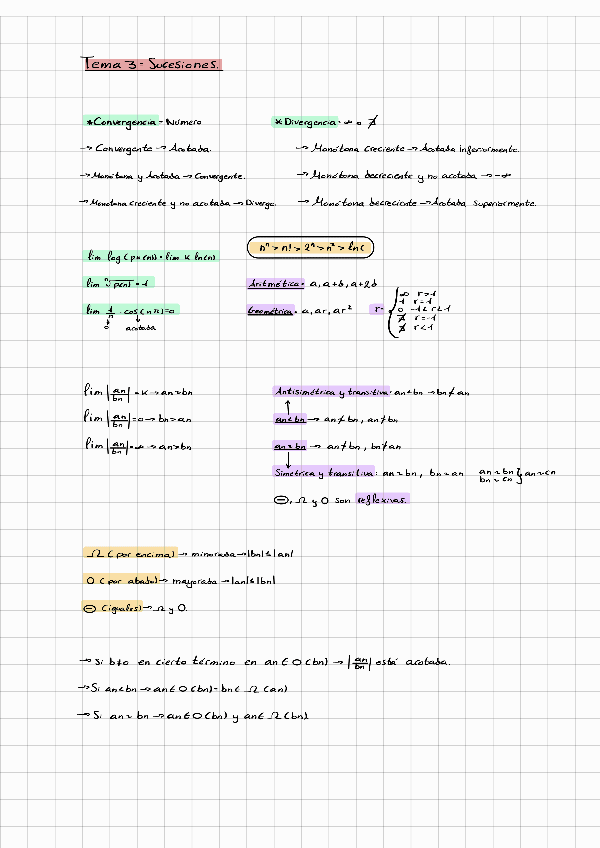 Tema 3 - Sucesiones.
*Convergencia - Número
→ Convergente → Acotada.
→ Monótona y Acotada → Convergente.
→ Monótona creciente y no acotada → Diverge.
*Divergencia - ∞ o ∄
→ Monótona creciente → Acotada inferiormente.
→ Monótona decreciente y no acotada → -∞
→ Monótona decreciente → Acotada superiormente.
lim log(p(n)) = lim K ln(n)
lim ⁿ√p(n) = 1
lim 1/n · cos(nπ) = 0
↓ ↓
0 acotada
nⁿ > n! > 2ⁿ > n² > ln(
Aritmética - a, a+b, a+2b
Geométrica - a, ar, ar²
r -
∞ r>1
1 r=1
0 -1<r<1
∄ r=-1
∄ r<1
lim |an/bn| = K → an≈bn
lim |an/bn| = 0 → bn>an
lim |an/bn| = ∞ → an>bn
Antisimétrica y transitiva: an<bn → bn≮an
↑
an<bn → an≠bn, an≯bn
an≈bn → an≠bn, bn≠an
↓
Simétrica y transitiva: an≈bn, bn≈an an≈bn bn≈cn } an≈cn
Θ, Ω y O son reflexivas.
Ω (por encima) → minorada → |bn|≤|an|
O (por abajo) → mayorada → |an|≤|bn|
Θ (iguales) → Ω y O.
→ Si b≠0 en cierto término en an∈O(bn) → |an/bn| está acotada.
→ Si an<bn → an∈O(bn) - bn∈Ω(an)
→ Si an≈bn → an∈O(bn) y an∈Ω(bn)